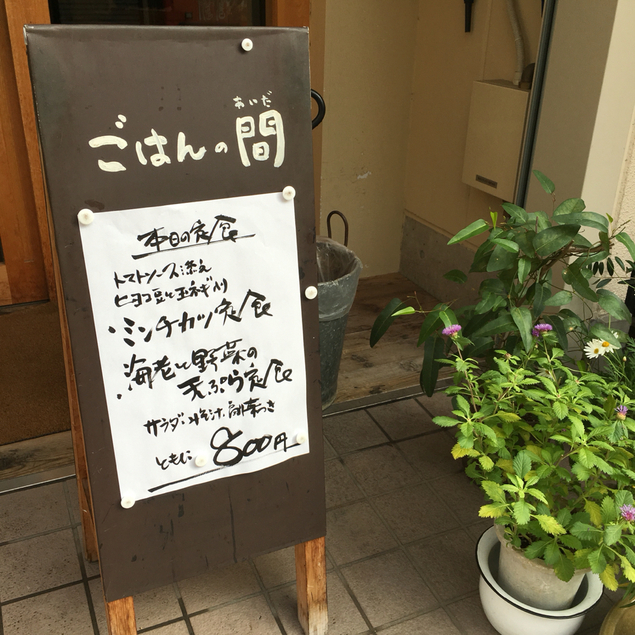 あいだ
ごはんの間
本日の定食
トマトソース添え
ヒヨコ豆と玉ネギ入り
・ミンチカツ定食
・海老と野菜の
天ぷら定食
サラダ・みそ汁・副菜つき
ともに 800円